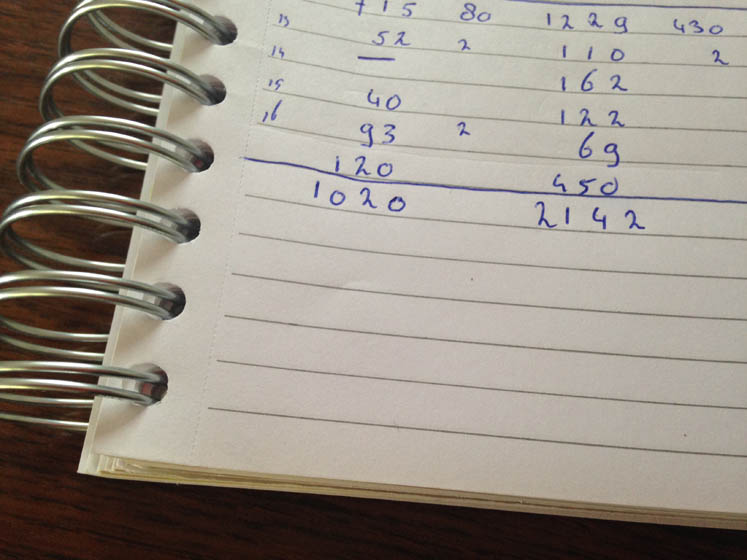 715 80 1229 430
13 52 2 110 2
14 — 162
15 40 122
16 93 2 69
120 450
1020 2142